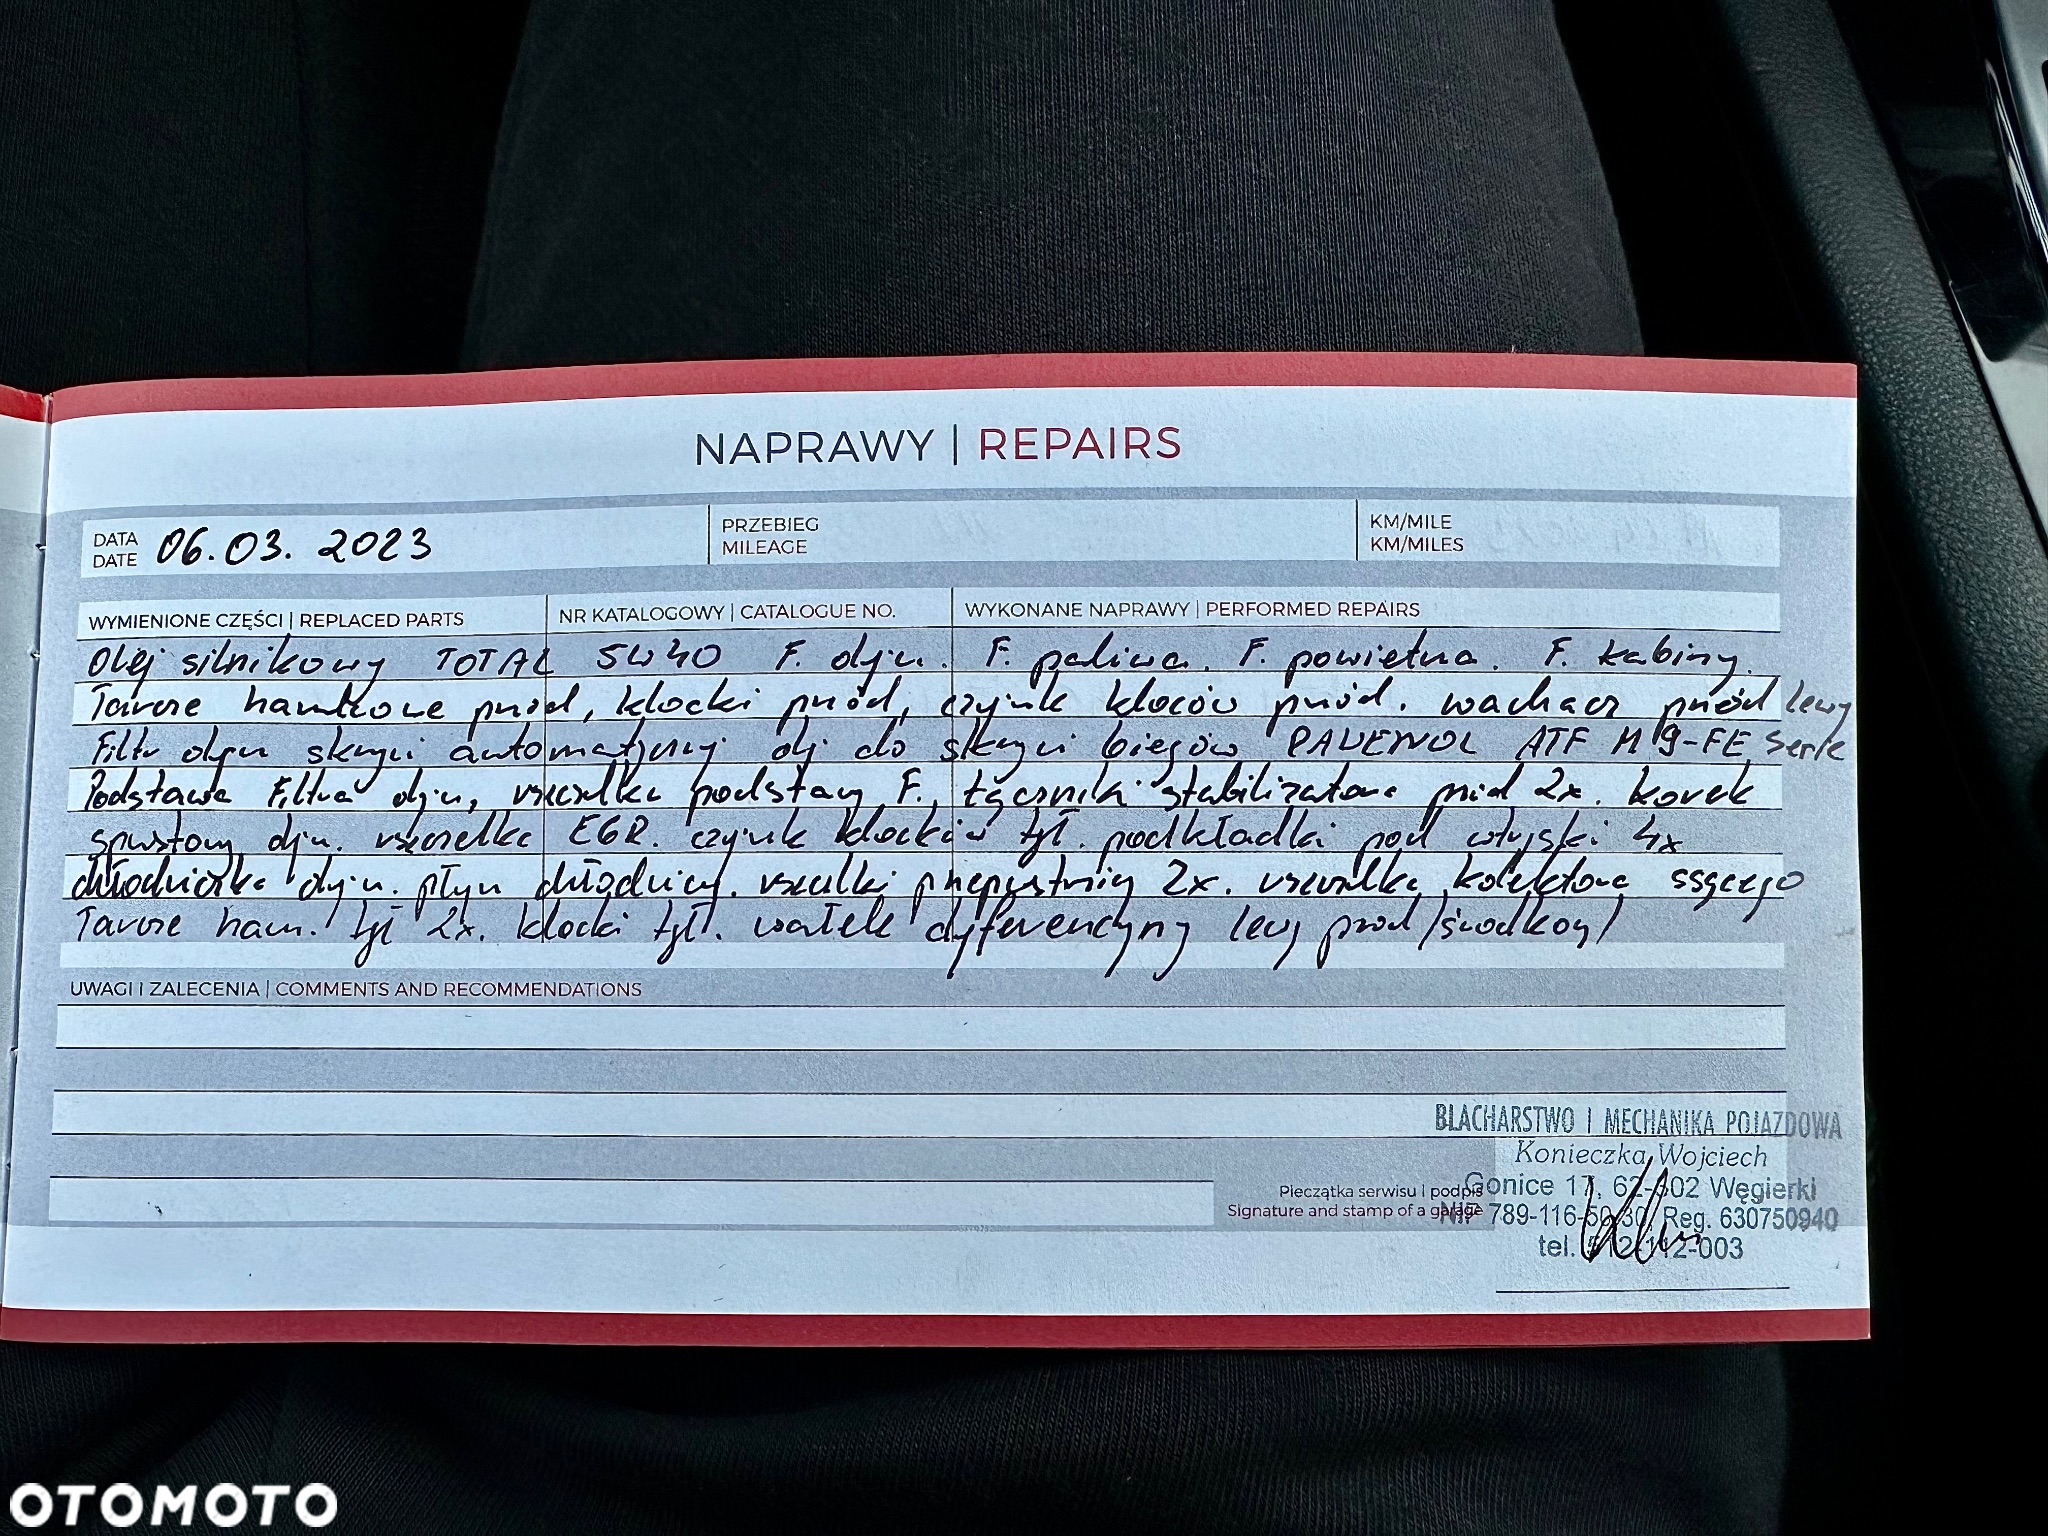 NAPRAWY | REPAIRS
DATA
DATE 06.03. 2023
PRZEBIEG
MILEAGE
KM/MILE
KM/MILES
WYMIENIONE CZĘŚCI | REPLACED PARTS
NR KATALOGOWY | CATALOGUE NO.
WYKONANE NAPRAWY | PERFORMED REPAIRS
Olej silnikowy TOTAL 5W40 F. oleju. F. paliwa. F. powietrza. F. kabiny.
Tarcze hamulcowe przód, klocki przód, czujnik klocków przód. wachacz przód lewy
Filtr oleju skrzyni automatycznej olej do skrzyni biegów RAVENOL ATF M 9-FE Serie
Podstawa Filtra oleju, uszczelka podstawy F., łączniki stabilizatora przód 2x. korek
spustowy oleju. uszczelka EGR. czujnik klocków tył. podkładki pod wtryski 4x
chłodniczka oleju. płyn chłodniczy. uszczelki przepustnicy 2x. uszczelka kolektora ssącego
Tarcze ham. tył 2x. klocki tył. wałek dyferencyny lewy przód /środkowy/
UWAGI I ZALECENIA | COMMENTS AND RECOMMENDATIONS
BLACHARSTWO I MECHANIKA POJAZDOWA
Konieczka Wojciech
Pieczątka serwisu i podpis Gonice 17, 62-302 Węgierki
Signature and stamp of a garage NIP 789-116-50-30, Reg. 630750940
tel. 512-112-003
OTOMOTO